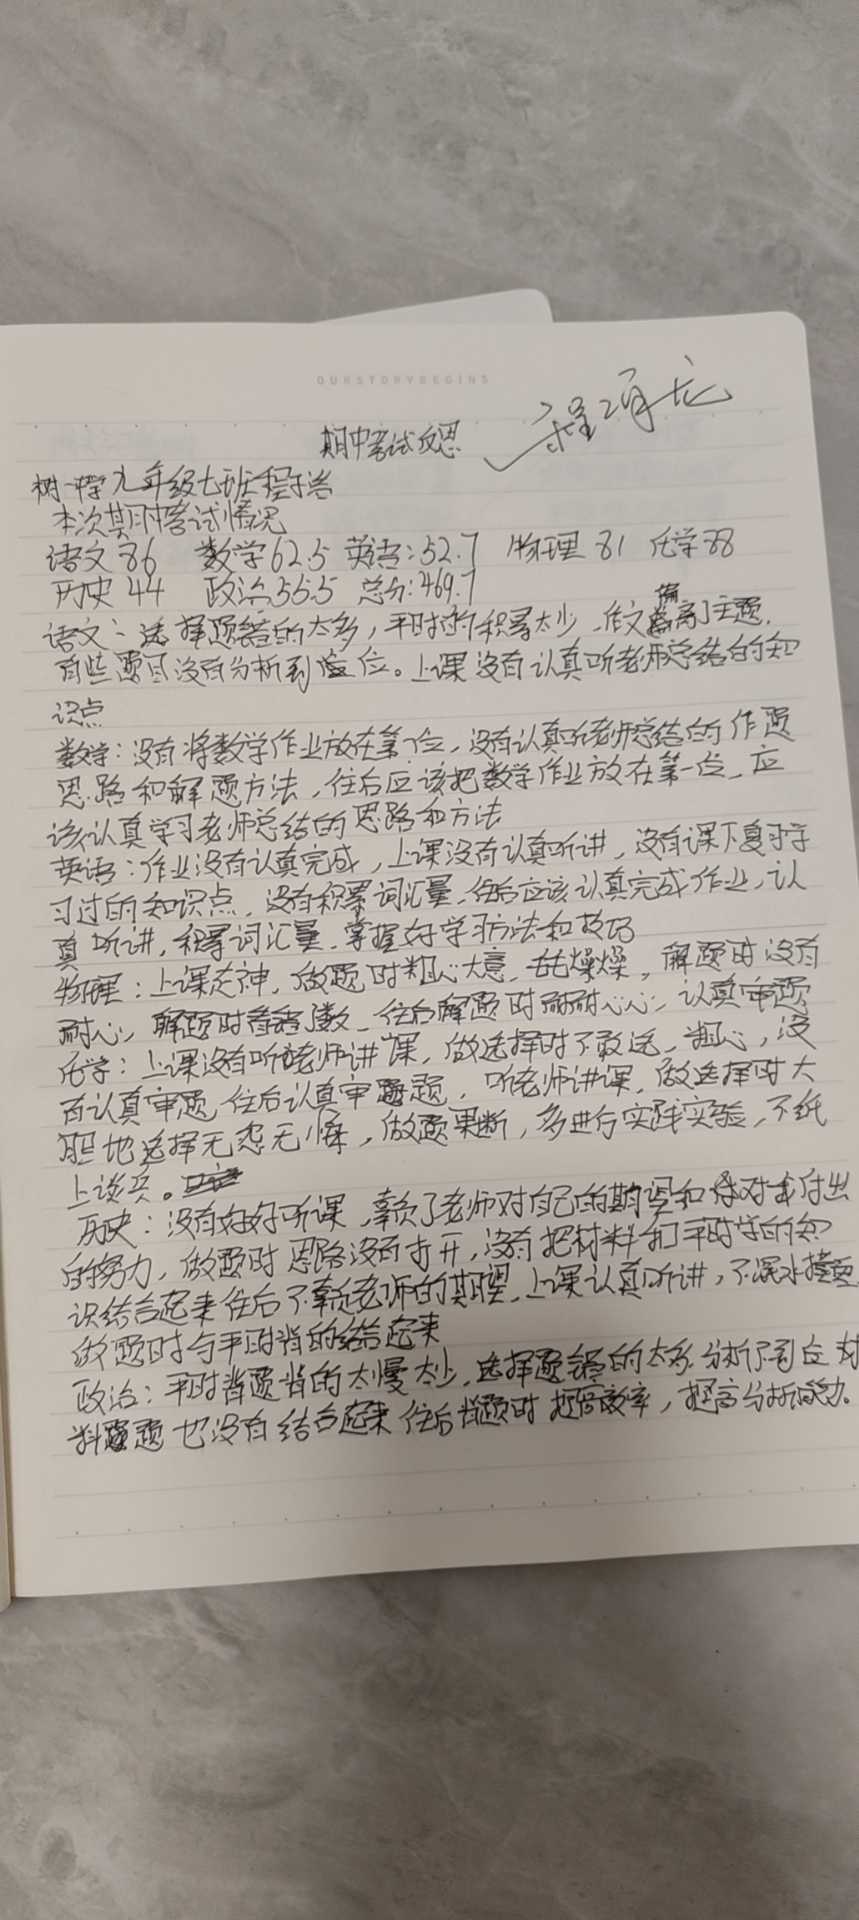 OURSTORYBEGINS
期中考试反思
树一中学九年级七班程子浩
本次期中考试情况
语文86 数学62.5 英语:52.7 物理81 化学88
历史44 政治55.5 总分:469.7
语文:选择题错的太多,平时的积累太少,作文偏离了主题,
有些题目没有分析到位。上课没有认真听老师总结的知
识点
数学:没有将数学作业放在第一位,没有认真听老师总结的作题
思路和解题方法,往后应该把数学作业放在第一位,应
该认真学习老师总结的思路和方法
英语:作业没有认真完成,上课没有认真听讲,没有课下复习学
习过的知识点,没有积累词汇量,往后应该认真完成作业,认
真听讲,积累词汇量,掌握好学习方法和技巧
物理:上课走神,做题时粗心大意,毛毛燥燥,解题时没有
耐心,解题时看错了数,往后解题时耐耐心心,认真审题
化学:上课没有听老师讲课,做选择时不敢选,粗心,没
有认真审题 往后认真审题,听老师讲课,做选择时大
胆地选择无怨无悔,做题果断,多进行实践实验,不纸
上谈兵。
历史:没有好好听课,辜负了老师对自己的期望和对我付出
的努力,做题时思路没有打开,没有把材料和平时学的知
识结合起来 往后不辜负老师的期望,上课认真听讲,不浑水摸鱼
做题时与平时背的结合起来
政治:平时背题背的太慢太少,选择题错的太多 分析不到位 材
料题也没有结合起来 往后背题时提高效率,提高分析能力。